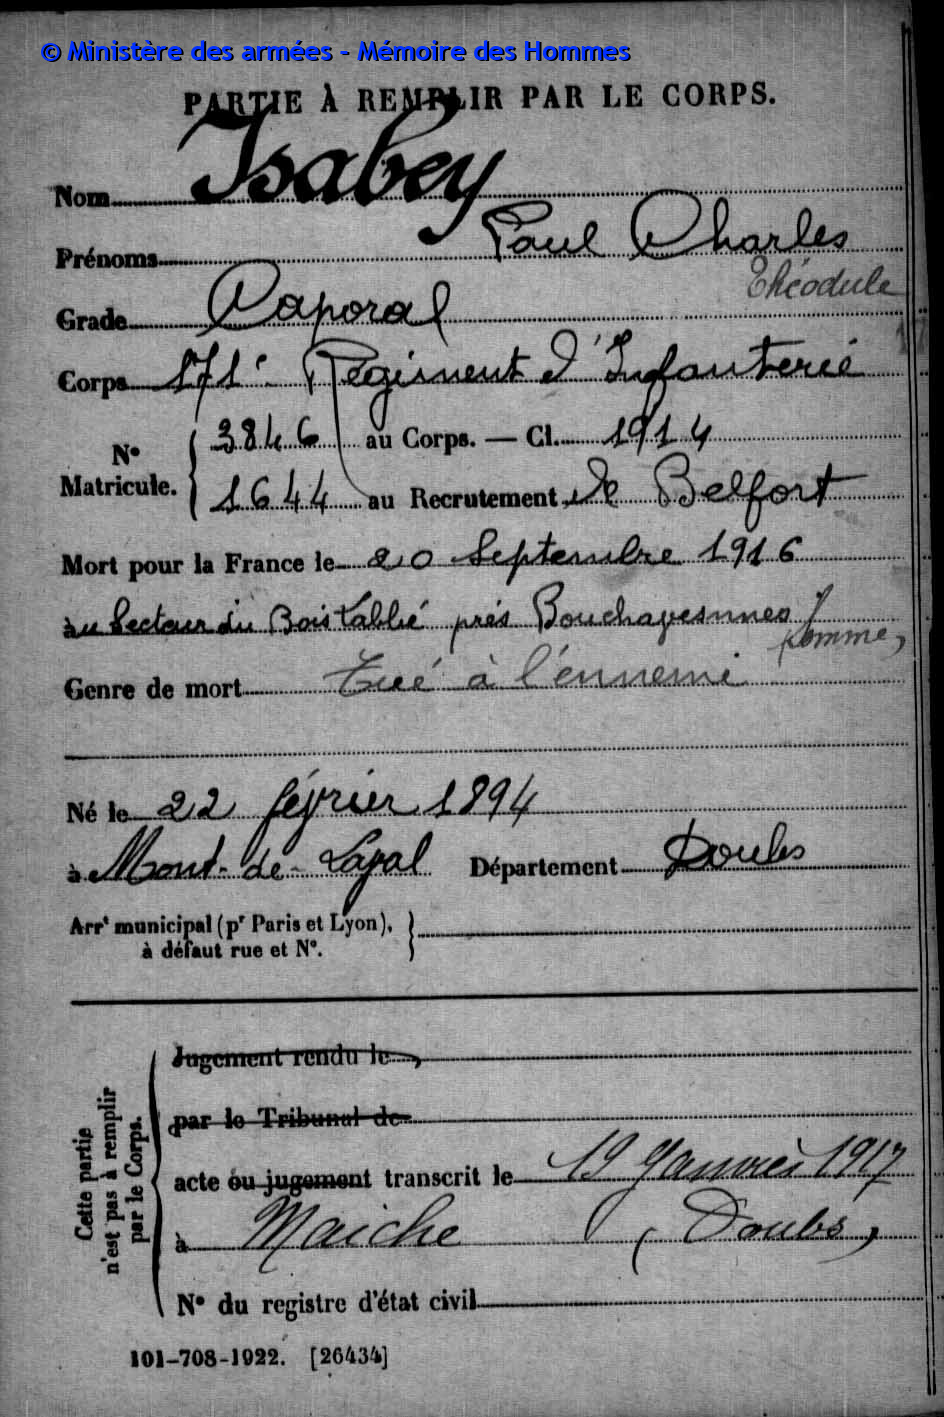 © Ministère des armées - Mémoire des Hommes
PARTIE À REMPLIR PAR LE CORPS.
Nom Isabey
Prénoms Paul Charles
Théodule
Grade Caporal
Corps 171e Régiment d'Infanterie
N° Matricule. { 3846 au Corps. — Cl. 1914
1644 au Recrutement de Belfort
Mort pour la France le 20 Septembre 1916
au Secteur du Bois Labbé près Bouchavesnnes
(Somme)
Genre de mort Tué à l'ennemi
Né le 22 février 1894
à Mont-de-Laval Département Doubs
Arrt municipal (pr Paris et Lyon),
à défaut rue et N°. }
Cette partie
n'est pas à remplir
par le Corps.
Jugement rendu le
par le Tribunal de
acte ou jugement transcrit le 19 Janvier 1917
à Maiche (Doubs)
N° du registre d'état civil
101-708-1922. [26434]